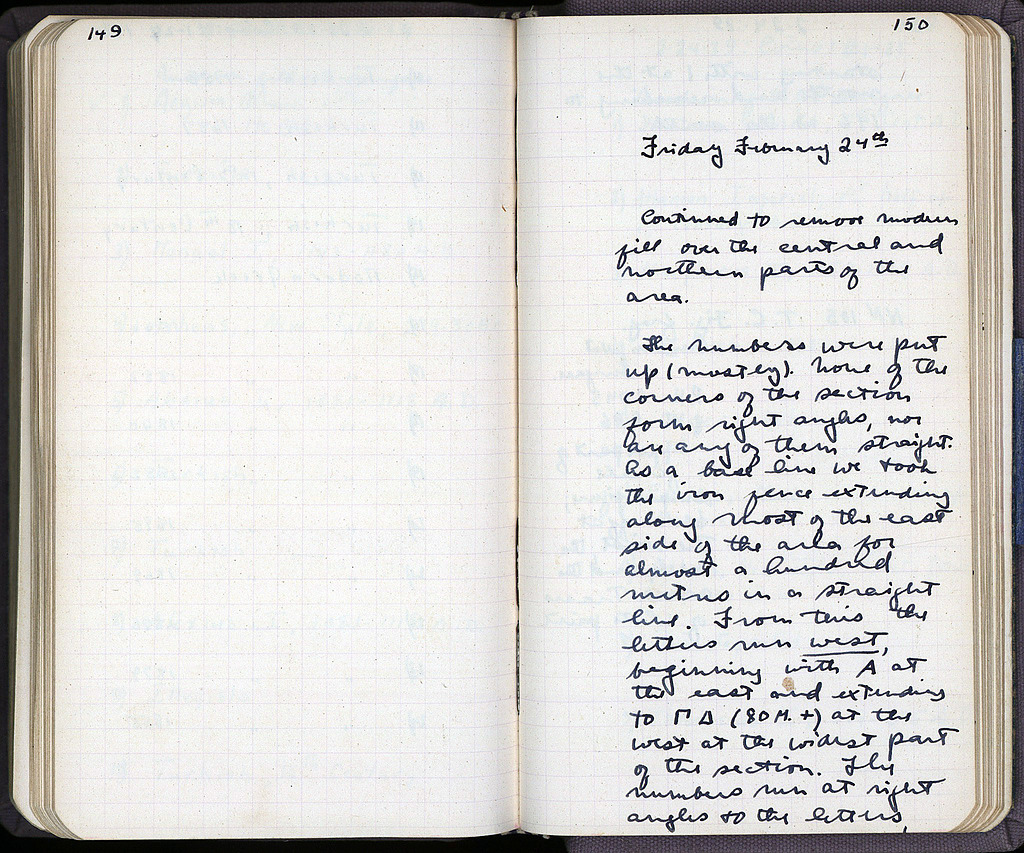 149
150
Friday February 24th
Continued to remove modern
fill over the central and
northern parts of the
area.
The numbers were put
up (mostly). None of the
corners of the section
form right angles, nor
are any of them straight.
As a base line we took
the iron fence extending
along most of the east
side of the area for
almost a hundred
metres in a straight
line. From this the
letters run west,
beginning with A at
the east and extending
to ΓΔ (80 M. +) at the
west at the widest part
of the section. The
numbers run at right
angles to the letters,